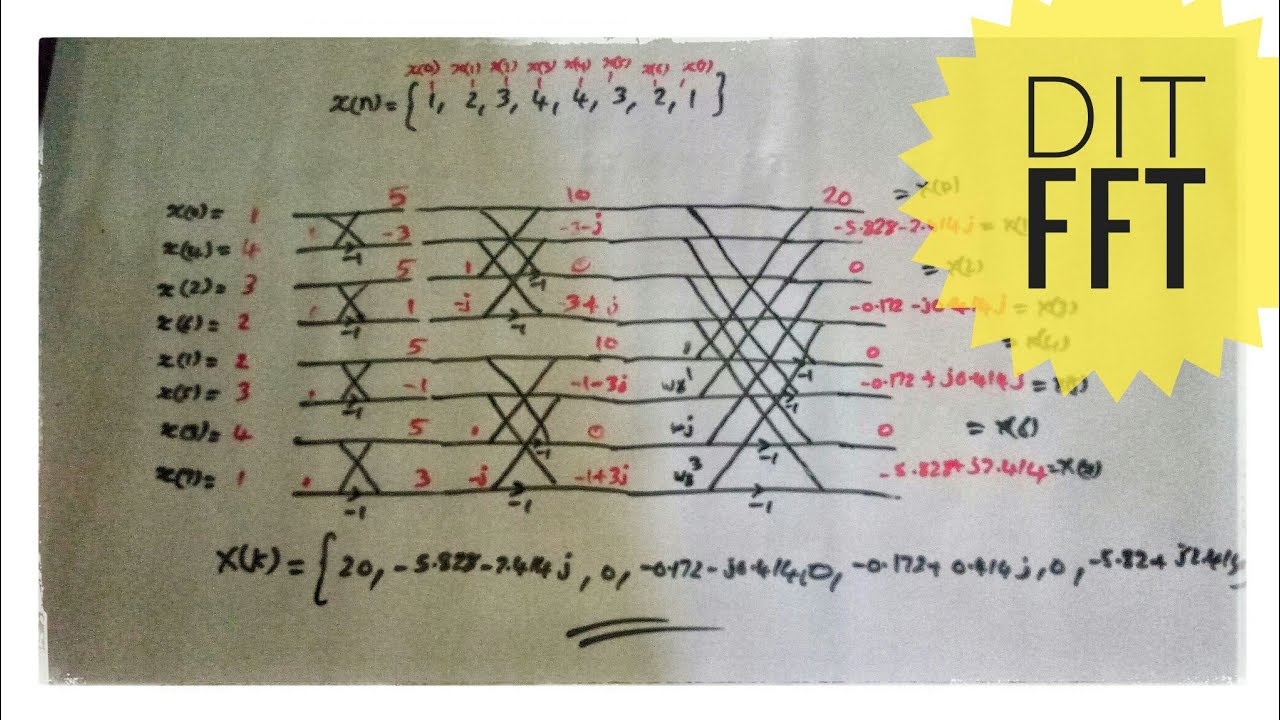 x(0) x(1) x(2) x(3) x(4) x(5) x(6) x(7)
x(n) = { 1, 2, 3, 4, 4, 3, 2, 1 }
DIT
FFT
x(0) = 1 5 10 20 = X(0)
x(4) = 4 -1 -3 -3-j -5.828-2.414j = X(1
x(2) = 3 5 1 -1 0 0 = X(2)
x(6) = 2 -1 1 -j -1 -3+j -0.172-j0.414j = X(3)
x(1) = 2 5 10 1 -1 0 = X(4)
x(5) = 3 -1 -1 -1-3j w8¹ -1 -0.172+j0.414j =
x(3) = 4 5 -1 0 -j -1 0 = X(6)
x(7) = 1 -1 3 -j -1 -1+3j w8³ -1 -5.828+j2.414 =
X(k) = { 20, -5.828-2.414j, 0, -0.172-j0.414, 0, -0.172+0.414j, 0, -5.82+j2.414